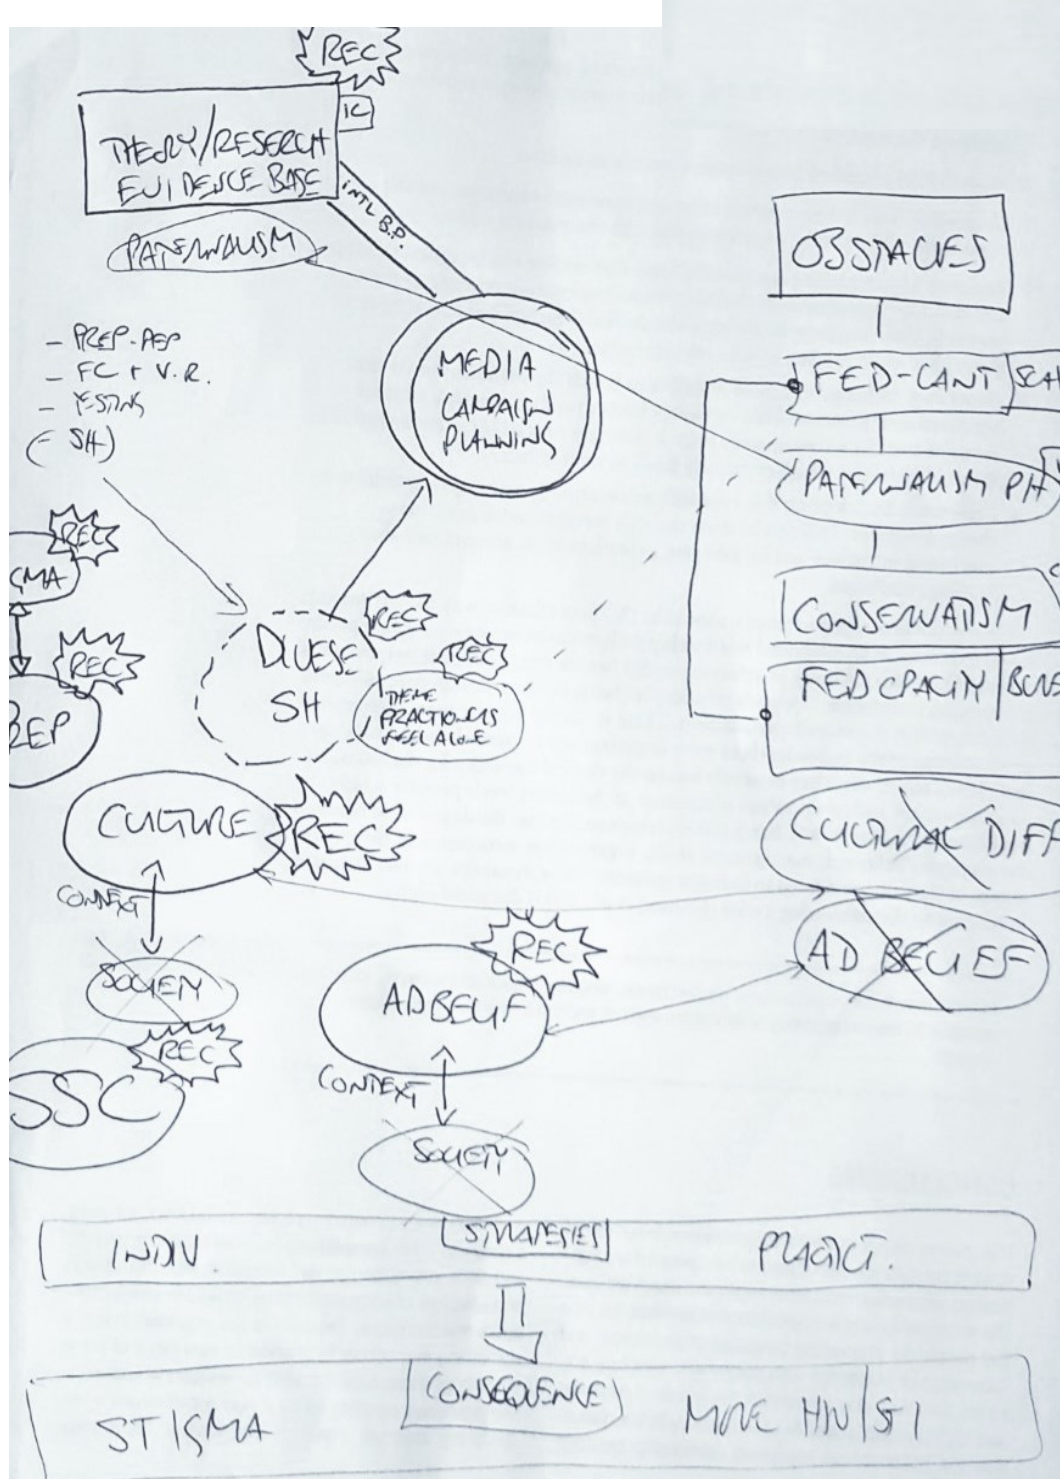 REC
IC
THEORY/RESERCH
EVIDENCE BASE
INTL B.P.
PATERNALISM
OBSTACLES
- PREP-PEP
- FC + V.R.
- TESTING
(- SH)
MEDIA
CAMPAIGN
PLANNING
FED-CANT
PATERNALISM PH
REC
GMA
REC
REP
DIVESE
SH
REC
REC
THEME
PRACTIONERS
FEEL ALONE
CONSERVATISM
FED CPACITY
CULTURE
REC
CULTURAL DIFF
CONTEXT
SOCIETY
REC
SSC
REC
AD BELIEF
AD BELIEF
CONTEXT
SOCIETY
INDIV.
STRATEGIES
PRACTICT.
CONSEQUENCE
STIGMA
MORE HIV/STI